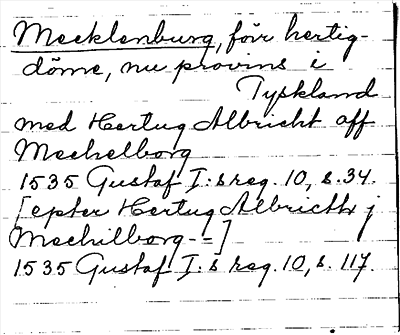 Mecklenburg, förr hertig-
döme, nu provins i
Tyskland
med Hertug Albricht aff
Mechelborg
1535 Gustaf I:s reg. 10, s. 34.
[epter Hertug Albrichtz j
Mechilborg - =]
1535 Gustaf I:s reg. 10, s. 117.